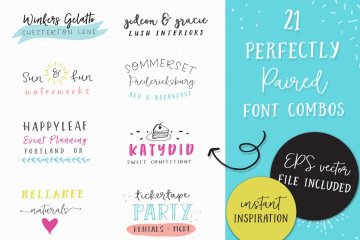 Winkers Gelatto
CHESTERTON LANE
gideon & gracie
LUSH INTERIORS
Sun & fun
waterworks
SOMMERSET
Fredericksburg
BED & BREAKFAST
HAPPYLEAF
Event Planning
PORTLAND, OR
KATYDID
SWEET CONFECTIONS
BELLABEE
naturals
tickertape
PARTY
RENTALS + MORE
21
PERFECTLY
Paired
FONT COMBOS
EPS vector
FILE INCLUDED
instant
INSPIRATION